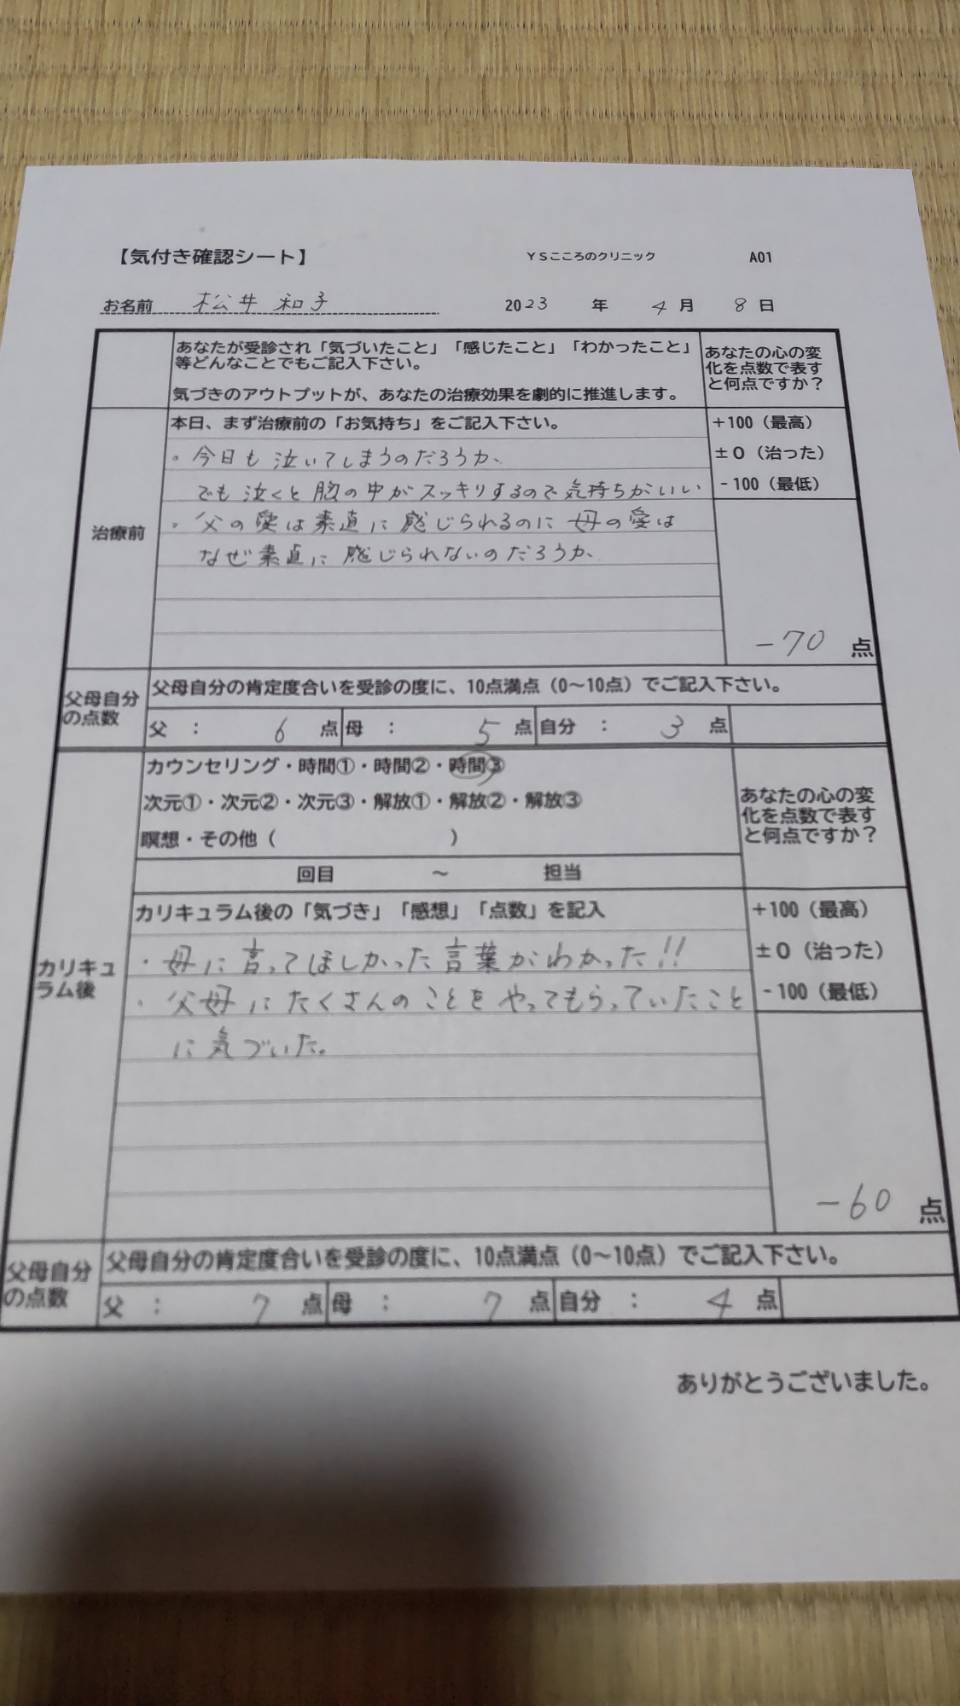 【気付き確認シート】 YSこころのクリニック A01
お名前 松井 和子 2023 年 4 月 8 日
あなたが受診され「気づいたこと」「感じたこと」「わかったこと」
等どんなことでもご記入下さい。
気づきのアウトプットが、あなたの治療効果を劇的に推進します。
あなたの心の変
化を点数で表す
と何点ですか？
治療前
本日、まず治療前の「お気持ち」をご記入下さい。
・今日も泣いてしまうのだろうか、
でも泣くと胸の中がスッキリするので気持ちがいい
・父の愛は素直に感じられるのに母の愛は
なぜ素直に感じられないのだろうか、
+100（最高）
±0（治った）
-100（最低）
-70 点
父母自分
の点数
父母自分の肯定度合いを受診の度に、10点満点（0～10点）でご記入下さい。
父 ： 6 点 母 ： 5 点 自分 ： 3 点
カリキュ
ラム後
カウンセリング・時間①・時間②・時間③
次元①・次元②・次元③・解放①・解放②・解放③
瞑想・その他（ ）
回目 ～ 担当
あなたの心の変
化を点数で表す
と何点ですか？
カリキュラム後の「気づき」「感想」「点数」を記入
・母に言ってほしかった言葉がわかった!!
・父母にたくさんのことをやってもらっていたこと
に気づいた。
+100（最高）
±0（治った）
-100（最低）
-60 点
父母自分
の点数
父母自分の肯定度合いを受診の度に、10点満点（0～10点）でご記入下さい。
父 ： 7 点 母 ： 7 点 自分 ： 4 点
ありがとうございました。